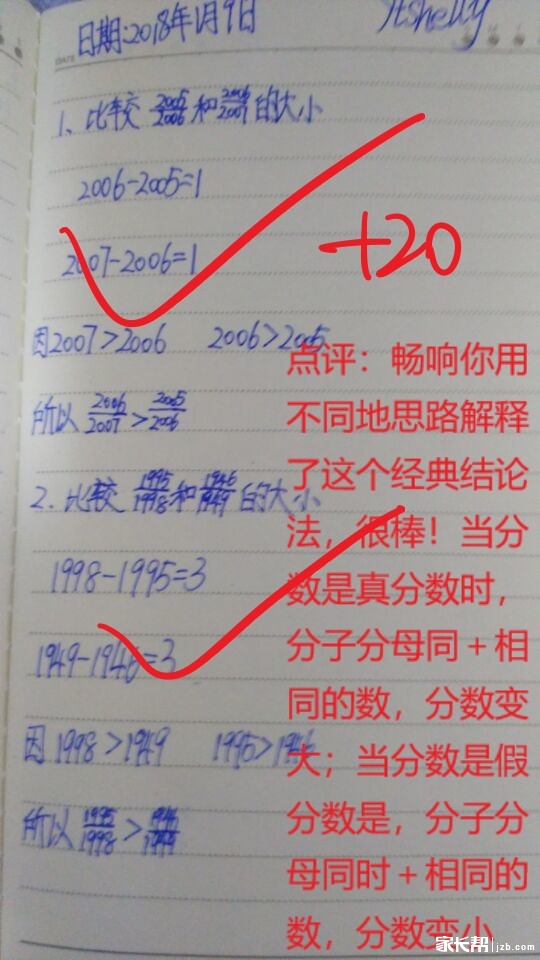 日期:2018年1月9日
Itshelly
DATE
1、比较 2005/2006 和 2006/2007 的大小
2006-2005=1
2007-2006=1
+20
因2007>2006 2006>2005
所以 2006/2007 > 2005/2006
2.比较 1995/1998 和 1946/1949 的大小
1998-1995=3
1949-1946=3
因1998>1949 1995>1946
所以 1995/1998 > 1946/1949
点评：畅响你用
不同地思路解释
了这个经典结论
法，很棒！当分
数是真分数时，
分子分母同＋相
同的数，分数变
大；当分数是假
分数是，分子分
母同时＋相同的
数，分数变小
家长帮 jzb.com